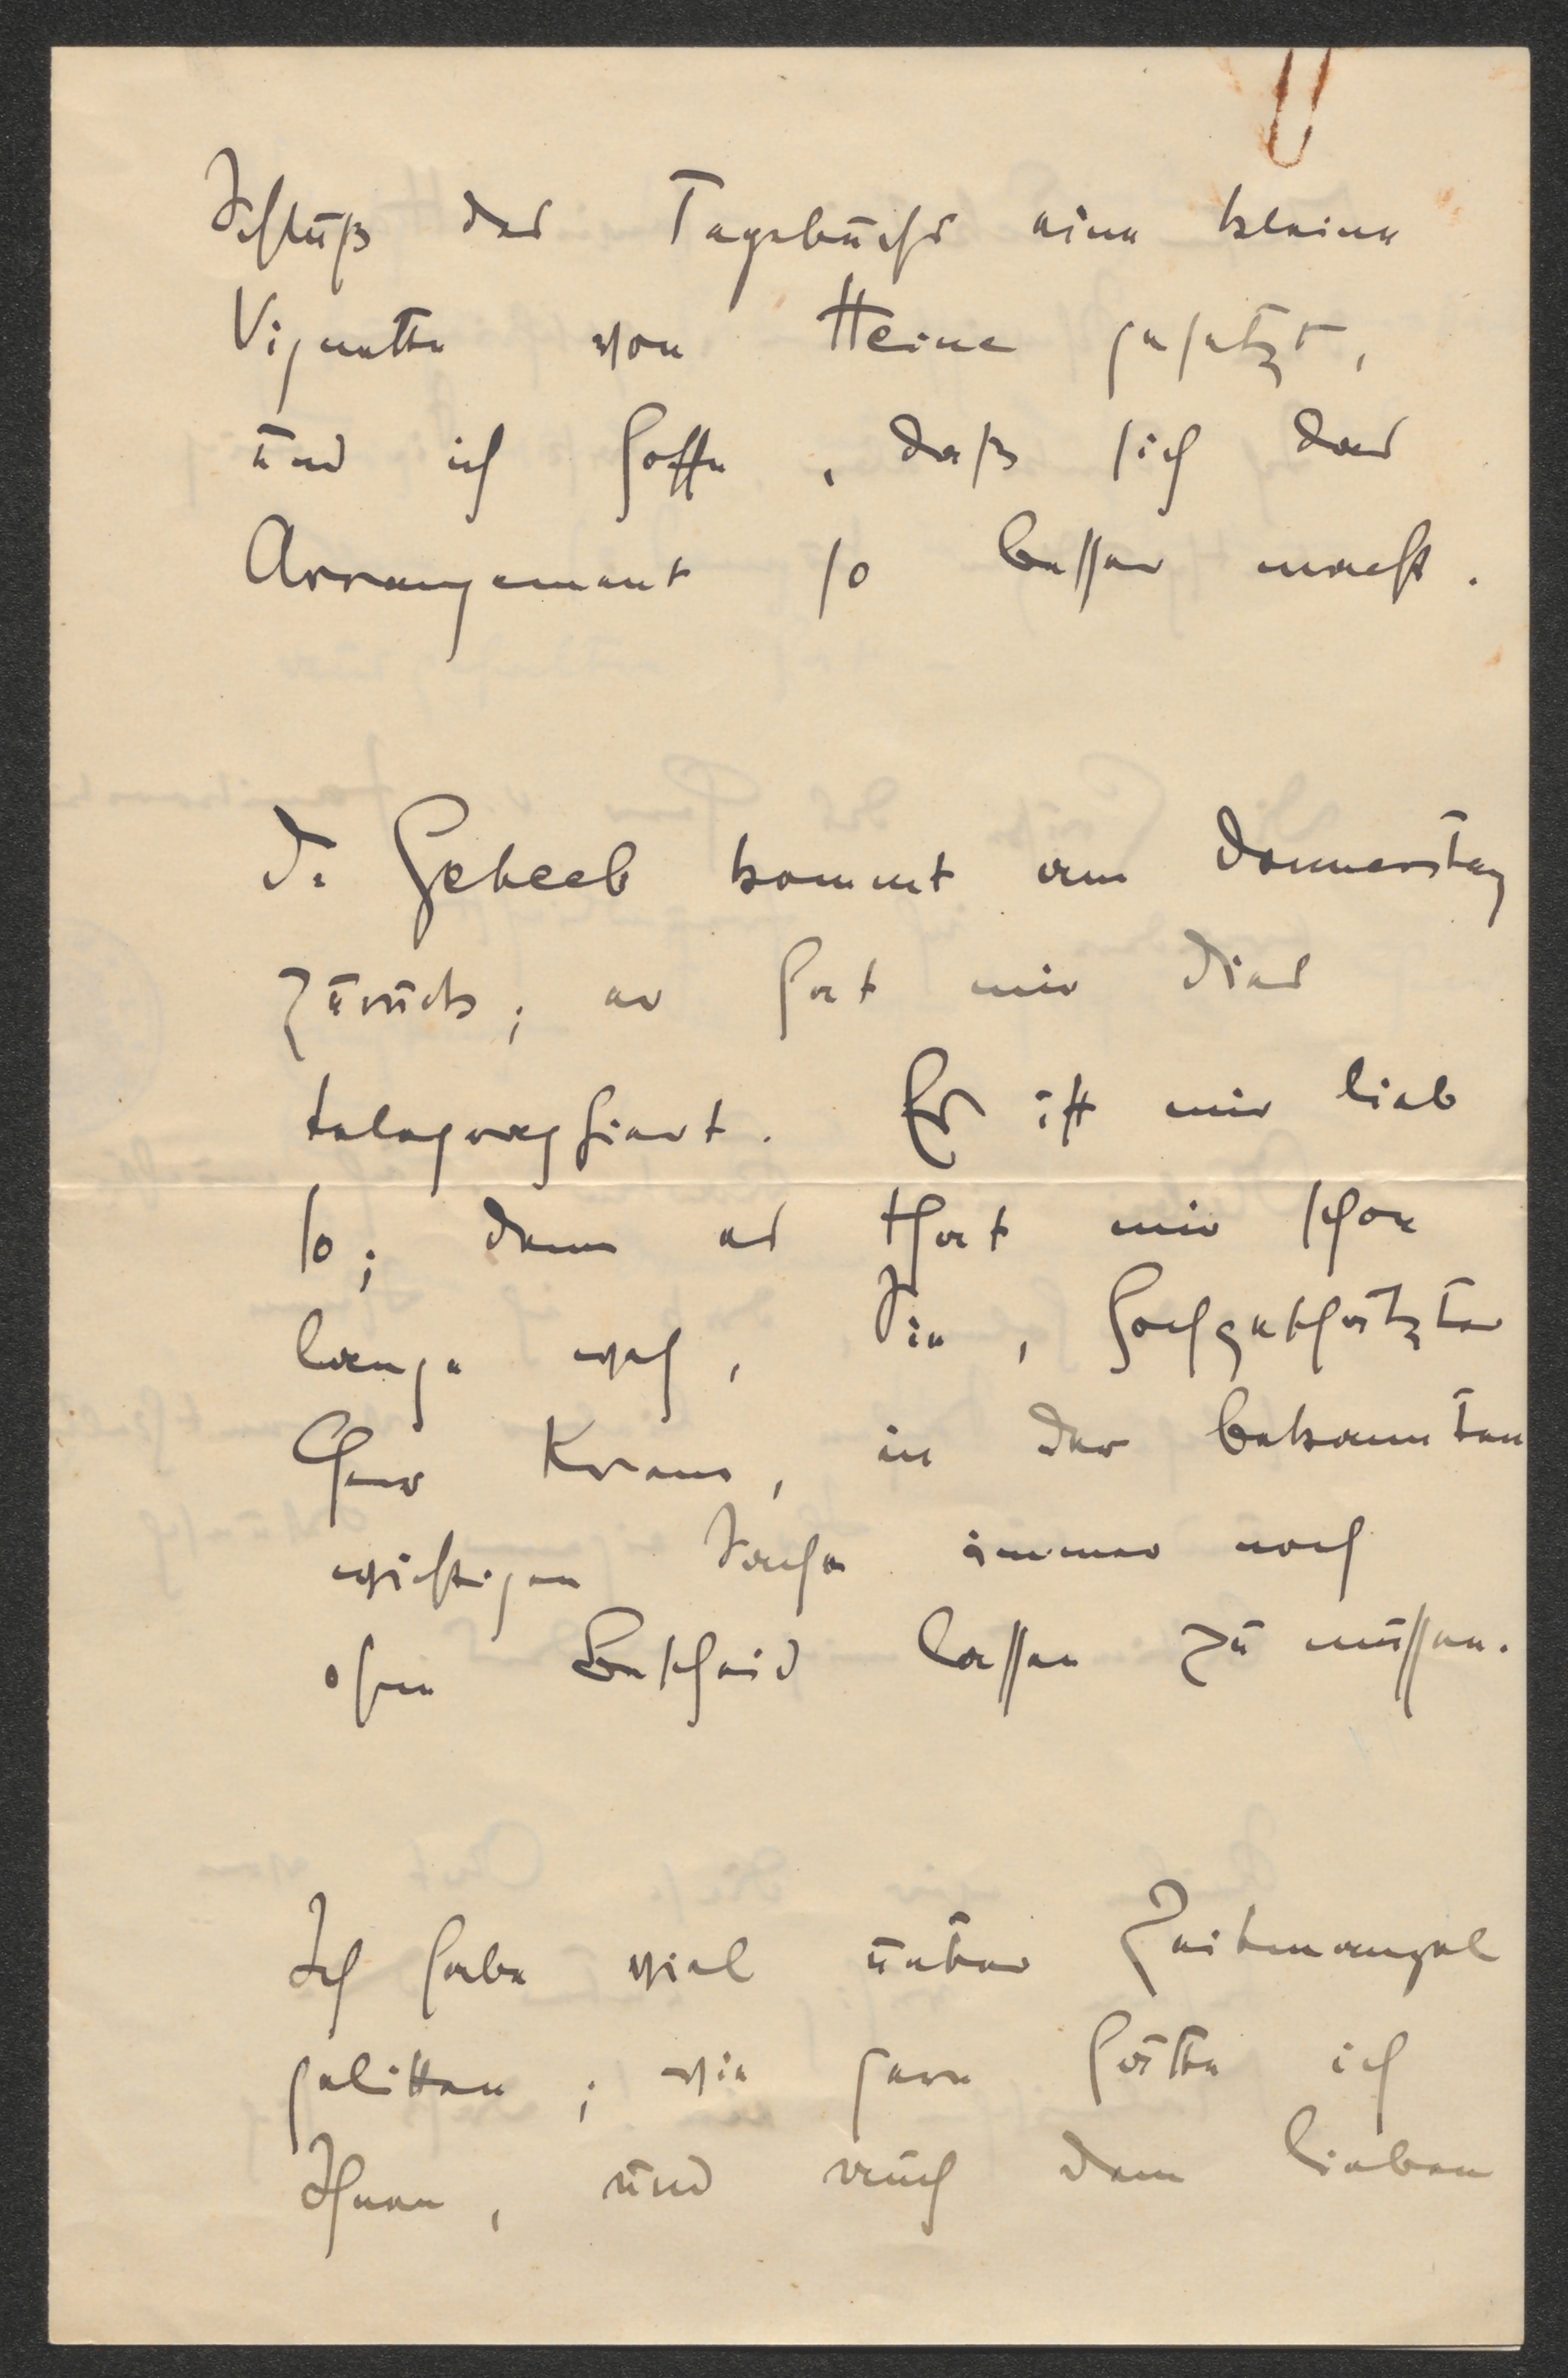 Schluß des Tagebuchs eine kleine
Vignette von Heine gesetzt,
und ich hoffe, daß sich das
Arrangement so besser macht.
Dr Geheeb kommt am Donnerstag
zurück; er hat mir dies
telegraphiert. Es ist mir lieb
so; denn es thut mir schon
lange weh, Sie, hochgeschätzter
Herr Kraus, in der bekannten
wichtigen Sache immer noch
ohne Bescheid lassen zu müssen.
Ich habe viel unter Zeitmangel
gelitten; wie gern hätte ich
Ihnen, und auch dem lieben